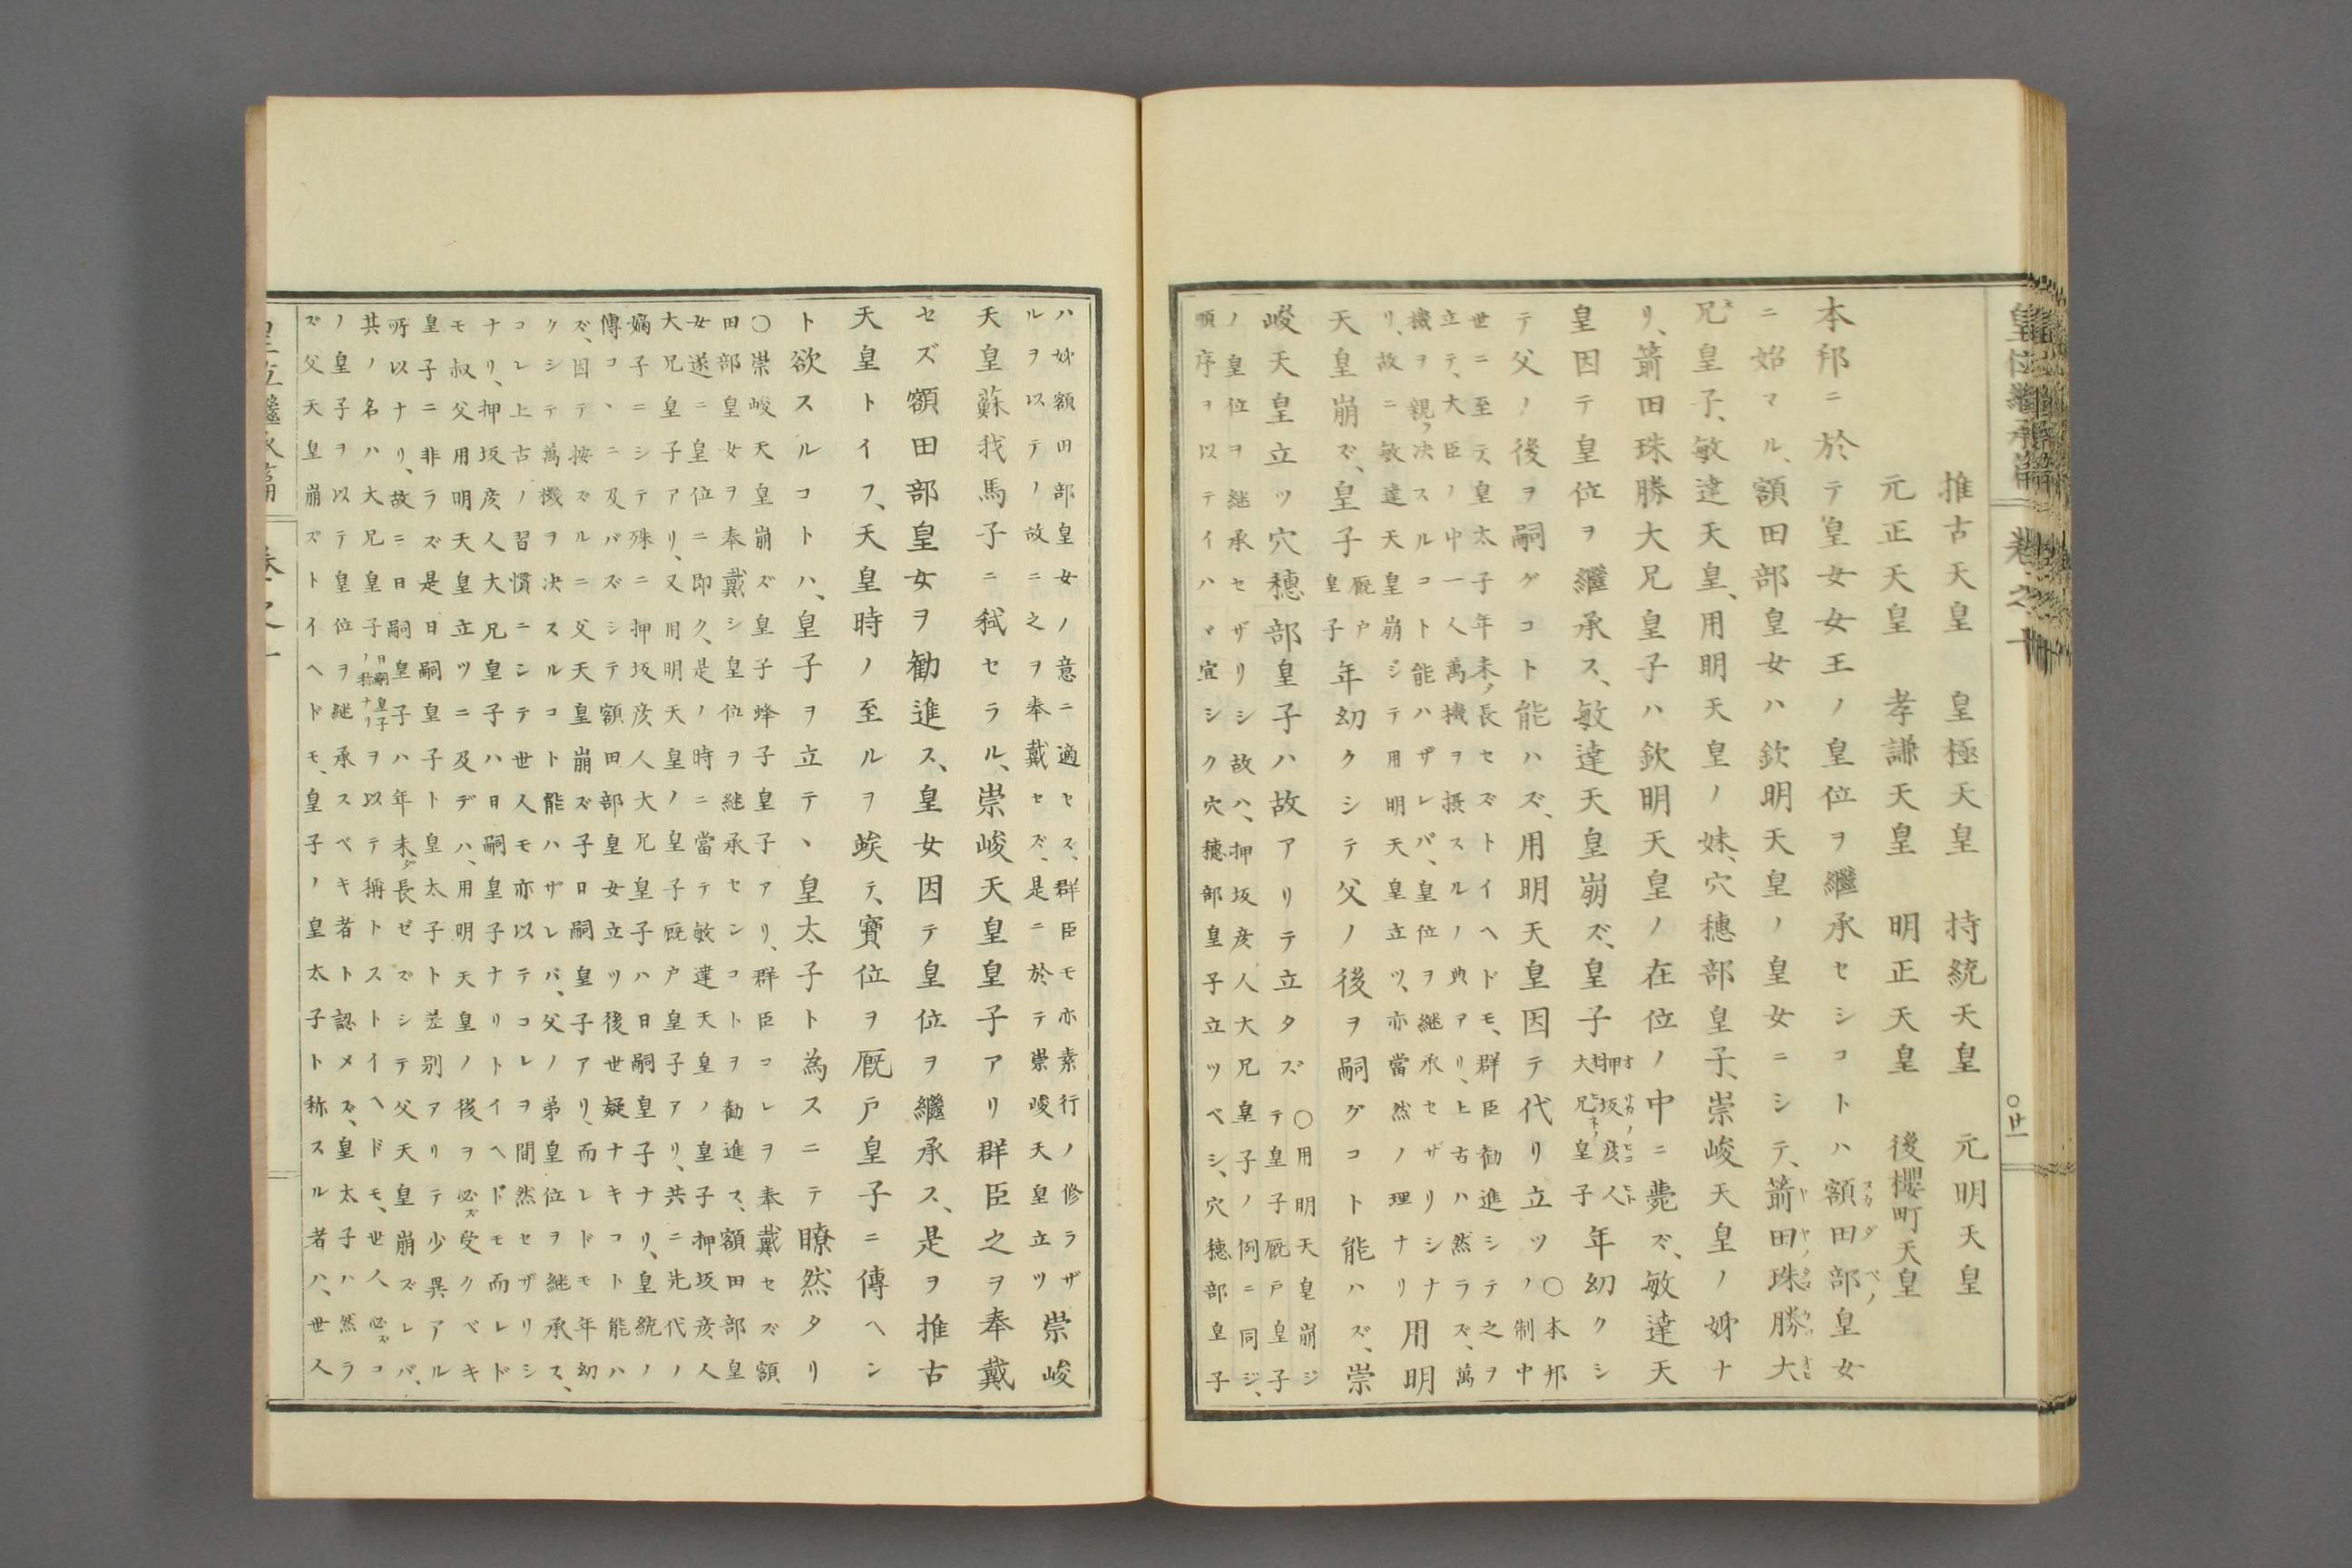 皇位繼承篇 卷之十 〇廿一
推古天皇 皇極天皇 持統天皇 元明天皇
元正天皇 孝謙天皇 明正天皇 後櫻町天皇
本邦ニ於テ皇女女王ノ皇位ヲ繼承セシコトハ額田部皇女
ニ始マル、額田部皇女ハ欽明天皇ノ皇女ニシテ、箭田珠勝大
兄皇子、敏達天皇、用明天皇ノ妹、穴穗部皇子、崇峻天皇ノ姉ナ
リ、箭田珠勝大兄皇子ハ欽明天皇ノ在位ノ中ニ薨ズ、敏達天
皇因テ皇位ヲ繼承ス、敏達天皇崩ズ、皇子押坂彦人大兄皇子年幼クシ
テ父ノ後ヲ嗣グコト能ハズ、用明天皇因テ代リ立ツ〇本邦ノ制中
世ニ至テ、皇太子年未ノ長セズトイヘドモ、群臣勸進シテ之ヲ
立テ、大臣ノ中一人萬機ヲ摂スルノ典アリ、上古ハ然ラズ、萬
機ヲ親ラ決スルコト能ハザレバ、皇位ヲ継承セザリシナ
リ、故ニ敏達天皇崩ジテ用明天皇立ツ、亦當然ノ理ナリ用明
天皇崩ズ、皇子厩戸皇子年幼クシテ父ノ後ヲ嗣グコト能ハズ、崇
峻天皇立ツ穴穗部皇子ハ故アリテ立タズ〇用明天皇崩ジテ皇子厩戸皇子
ノ皇位ヲ継承セザリシ故ハ、押坂彦人大兄皇子ノ例ニ同ジ、
順序ヲ以テイハヾ宜シク穴穗部皇子立ツベシ、穴穗部皇子
ハ妙額田部皇女ノ意ニ適セズ、群臣モ亦素行ノ修ラザ
ルヲ以テノ故ニ之ヲ奉戴セズ、是ニ於テ崇峻天皇立ツ崇峻
天皇蘇我馬子ニ弑セラル、崇峻天皇皇子アリ群臣之ヲ奉戴
セズ額田部皇女ヲ勸進ス、皇女因テ皇位ヲ繼承ス、是ヲ推古
天皇トイフ、天皇時ノ至ルヲ竢テ、寶位ヲ厩戸皇子ニ傳ヘン
ト欲スルコトハ、皇子ヲ立テヽ皇太子ト為スニテ瞭然タリ
〇崇峻天皇崩ズ皇子蜂子皇子アリ、群臣コレヲ奉戴セズ額
田部皇女ヲ奉戴シ皇位ヲ継承センコトヲ勸進ス、額田部皇
女遂ニ皇位ニ即ク、是ノ時ニ當テ敏達天皇ノ皇子押坂彦人
大兄皇子アリ、又用明天皇ノ皇子厩戸皇子アリ、共ニ先代ノ
嫡子ニシテ殊ニ押坂彦人大兄皇子ハ日嗣皇子ナリ、皇統ノ
傳コヽニ及バズシテ額田部皇女立ツ後世疑ナキコト能ハ
ズ、因テ按ズルニ父天皇崩ズ子日嗣皇子アリ、而レドモ年幼
クシテ萬機ヲ決スルコト能ハザレバ、父ノ弟皇位ヲ継承ス、
コレ上古ノ習慣ニシテ世人モ亦以テコレヲ間然セザリシ
ナリ、押坂彦人大兄皇子ハ日嗣皇子ナリトイヘドモ而レド
モ叔父用明天皇立ツニ及デハ、用明天皇ノ後ヲ必ズ受クベキ
皇子ニ非ラズ是日嗣皇子ト皇太子ト差別アリテ少異アル
所以ナリ、故ニ日嗣皇子ハ年未ダ長ゼズシテ父天皇崩ズレバ、
其ノ名ハ大兄皇子日嗣皇子ノ称ナリヲ以テ稱トストイヘドモ、世人必ズコ
ノ皇子ヲ以テ皇位ヲ継承スベキ者ト認メズ、皇太子ハ然ラ
ズ父天皇崩ズトイヘドモ、皇子ノ皇太子ト称スル者ハ、世人